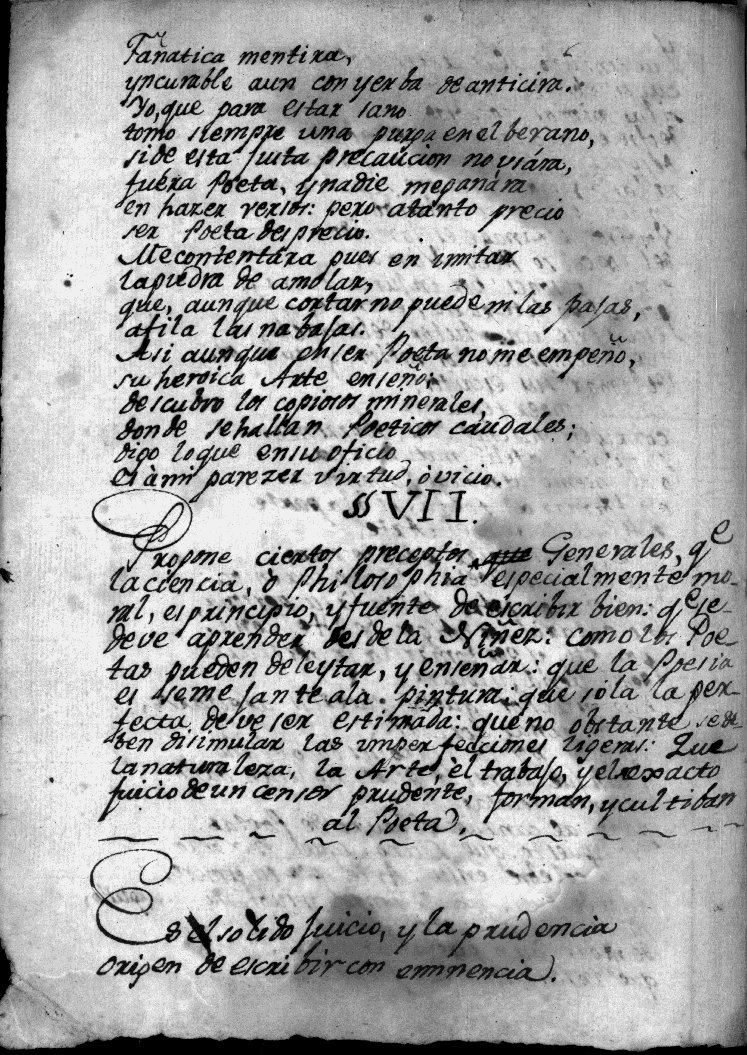 Fañatica mentira,
yncurable aun con yerba de anticira.
Yo, que para estar sano
tomo siempre una purga en el berano,
si de esta justa precaucion no usára,
fuera Poeta, y nadie meganára
en hazer versos: pero atanto precio
ser Poeta desprecio.
Mecontentára pues en imitar
lapiedra de amolar,
que, aunque cortar no puede ni las pajas,
afila las nabajas.
Asi aunque en ser Poeta no me empeño,
su heroica Arte enseño;
descubro los copiosos minerales,
donde sehallan Poeticos caudales;
digo loque ensu oficio
es à mi parezer virtud, ò vicio.
§§ VII.
Propone ciertos preceptos, que Generales, qe
laciencia, o Philosophia especialmente mo-
ral, es principio, y fuente de escribir bien: qe se-
deve aprender desdela Niñez: como los Poe-
tas pueden deleytar, y enseñar: que la Poesia
es semejante ala pintura: que sola la per-
fecta deve ser estimada: que no obstante, se de-
ben disimular las imperfecciones ligeras: Que
la naturaleza, la Arte, el trabajo, y el exacto
juicio de un censor prudente, forman, y cultiban
al Poeta.
Es el solido juicio, y la prudencia
origen de escribir con eminencia.